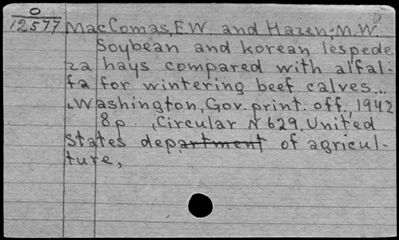 O
12577
MacComas, E.W. and Hazen, M.W.
Soybean and korean lespede
za hays compared with alfal-
fa for wintering beef calves...
Washington, Gov. print. off., 1942
8p., Circular N 629, United
States department of agricul-
ture,